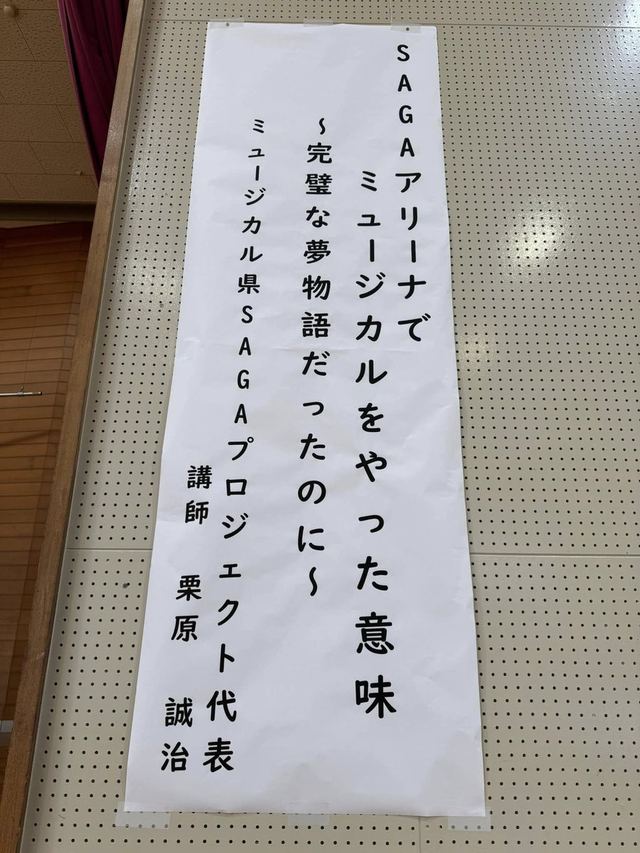 SAGAアリーナで
ミュージカルをやった意味
～完璧な夢物語だったのに～
ミュージカル県SAGAプロジェクト代表
講師 栗原 誠治